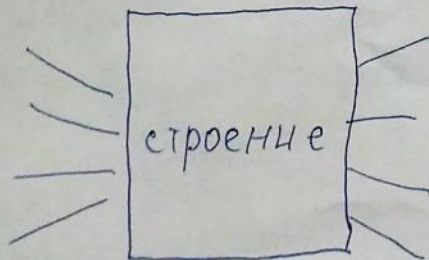 строение